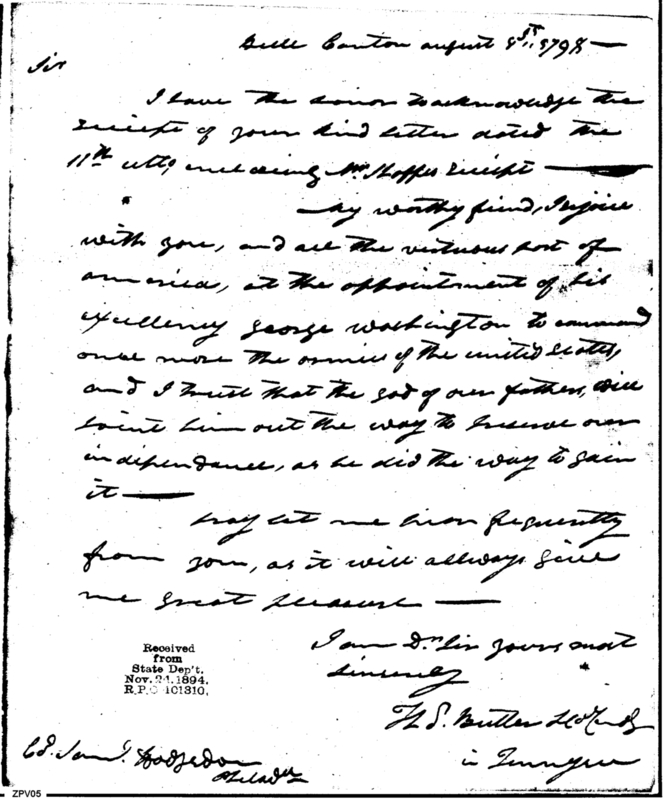 Bell Canton august 1st 1798 —
Sir
I have the honor to acknowledge the
receipt of your kind letter dated the
11th ulto, inclosing Mr receipt —
my worthy friend, I rejoice
with you, and all the virtuous part of
america, at the appointment of his
excellency george washington to command
once more the armies of the united States,
and I trust that the god of our fathers, will
point him out the way to preserve our
independance, as he did the way to gain
it —
pray let me hear frequently
from you, as it will allways give
me great pleasure —
I am Dr Sir yours most
sincerely
Butler
in Tennessee
Received
from
State Dep't.
Nov. 24, 1894.
R.P.O 101310.
Col. Saml. Hodgsdon
Philada
ZPV05